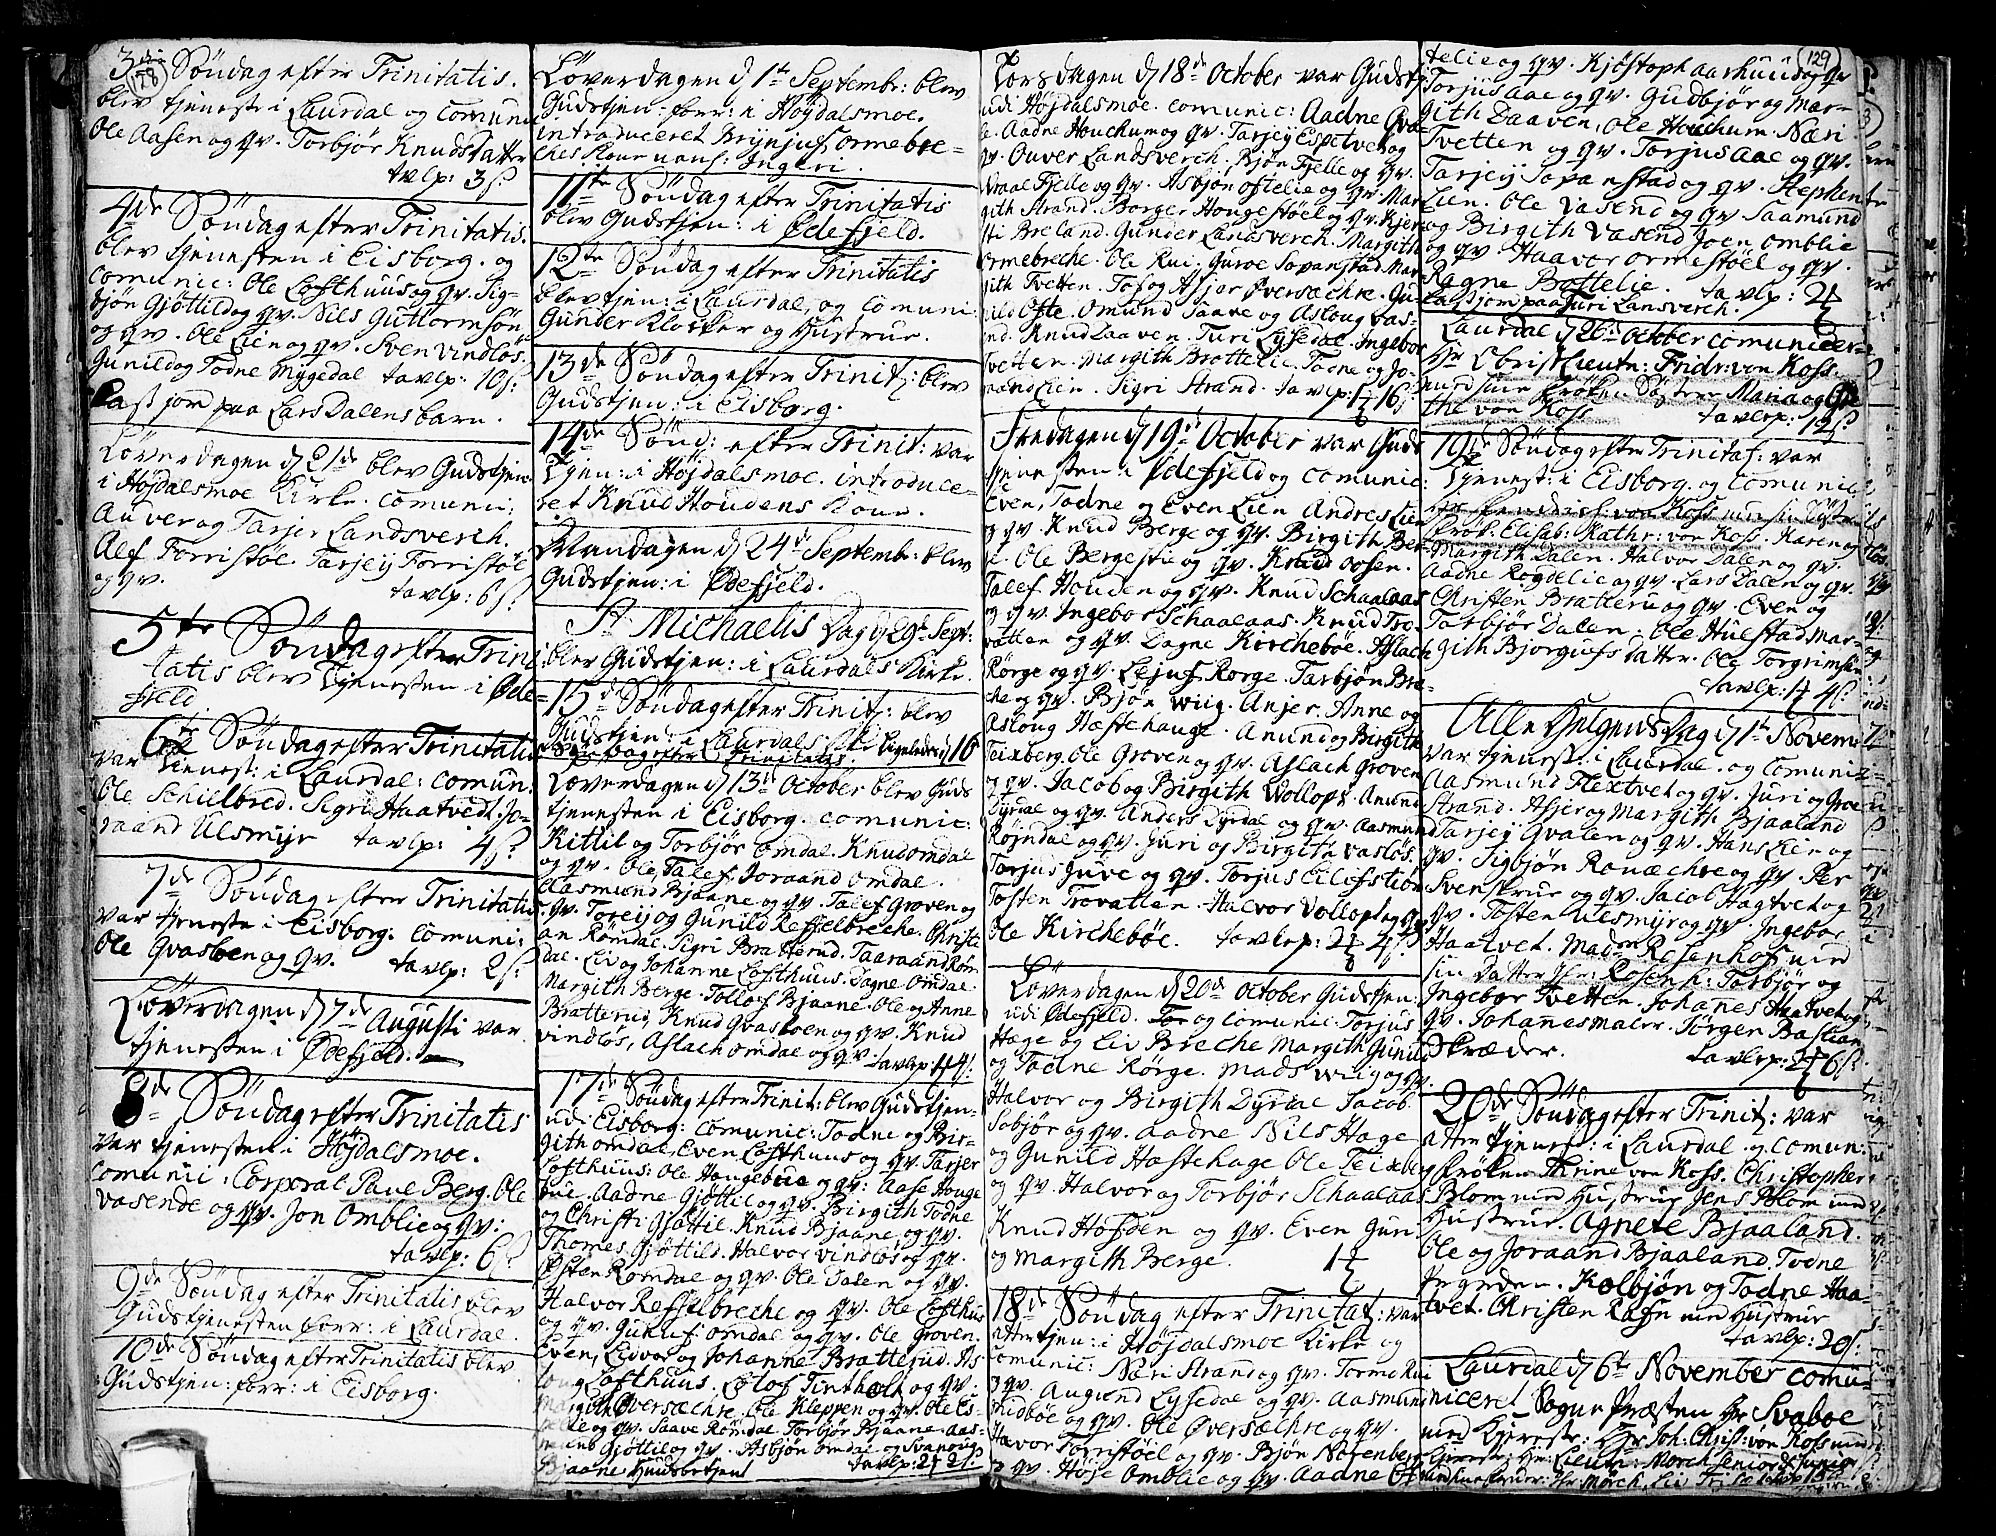 3die Søndag efter Trinitatis.
blev tjeneste i Laurdal og Comuni
Ole Aasen og qv. Torbjør Knudsdatter
tavlp: 3 s:
4de Søndag efter Trinitatis.
blev tjenesten i Eisborg. og
comunic: Ole Lofthuus og qv. Sig-
bjøn Gjøttild og qv. Nils Guttormsøn
og qv. Ole Lien og qv. Sven vindløs.
Gunild og Todne Mygedal tavlp: 10 s:
Cast jord paa Lars Dalens barn.
Løverdagen d 21de blev Gudstjen:
i Højdalsmoe Kirke. comunic:
Auver og Tarjer Landsverch.
Alf Forristøe. Tarjey Forristøel
og qv. tavlp: 6 s:
5te Søndag efter Trini
tatis blev Tjenesten i Øde-
fjeld
6te Søndag efter Trinitatis
var Tjenest: i Laurdal: comun:
Ole Schilbred. Sigri Haatvedt. Jo-
raand Ulsmyr tavlp: 4 s:
7de Søndag efter Trinitatis
var tjeneste i Eisborg: comuni:
Ole Qvasben og qv. tavlp: 2 s:
Løverdagen d 7de Augusti var
tjenesten i Ødefjeld.
8de Søndag efter Trinitatis
var tjenesten i Højdalsmoe.
comunic: Corporal Paul Berg. Ole
vasende og qv. Jon Omblie og qv:
tavlp: 6 s:
9de Søndag efter Trinitatis blev
Gudstjenesten forr: i Laurdal.
10de Søndag efter Trinitatis blev
Gudstjen: forr: i Eisborg.
Løverdagen d 1te Septembr: blev
Gudstjen: forr: i Højdalsmoe.
introduceret Brynjuf ormebre-
ches Kone nauf: Ingeri.
11te Søndag efter Trinitatis
blev Gudstjen: i Ødefjeld.
12te Søndag efter Trinitatis
blev tjen: i Laurdal, og comuni:
Gunder Klocker og Hustrue.
13de Søndag efter Trinit: blev
Gudstjen: i Eisborg.
14de Sønd: efter Trinit: var
Tjen: i Højdalsmoe. introduce-
ret Knud Houdens Kone.
Mandagen d 24de Septembr: blev
Gudstjen: i Ødefjeld.
St Michaelis Dag d 29de Sept:
blev Gudstjen: i Laurdals Kirke.
15de Søndag efter Trinit: blev
Gudstjen: i Laurdals Ligeledes d 16
Søndag efter Trinitatis.
Løverdagen d 13de October blev Guds
tjenesten i Eisborg. comunic:
Kittil og Torbjør omdal. Knud omdal
og qv. Ole, Talef, Joraand Omdal.
Aasmund Bjaane og qv. Talef Groven og
qv. Toreij og Gunild Reffelbreche. Christi
an Rømdal. Sigri Bratterud. Taaraand Røm
dal. Liv og Johanne Lofthuus. Dagne Omdal.
Margith Berge. Tollof Bjaane. Ole og Anne
Bratterud, Knud Qvasboen og qv. Knud
vindløs, Aslach omdal og qv. tavlp: 1 4 s:
17de Søndag efter Trinit: blev Gudstjen-
udi Eisborg: comunic: Todne og Bir-
gith omdal. Even Lofthuus og qv. Tarjer
Lofthuus: Ole Haugebue og qv: Aase Houge
bue. Aadne Gjøttil og qv. Birgith Todne
og Christi Gjøttil. Knud Bjaane og qv.
Thomes Gjøttild. Halvor vindløs og qv.
Østen Rømdal og qv. Ole Dalen og qv.
Halvor Reffelbreche og qv. Ole Lofthus
og qv. Gunuf: omdal og qv. Ole Groven.
Even, Eidvor og Johanne Bratterud. As
loug Lofthuus. Olof Tintholt og qv.
Margith Oversæchre. Ole Kleppen og qv. Ole Es
og qv. Saave Rømdal. Torbjør Bjaane. Aas-
mund Gjøttil og qv. Asbjøn omdal og Svanoug
Bjaane Huusbetjent tavlp: 2 2 s:
Torsdagen d 18de October var Gudstj
udi Højdalsmoe. comunic: Aadne Qva
le. Aadne Houchum og qv. Tarjey Espetvet og
qv. Ouver Landsverch. Bjøn Fjelle og qv.
Draal Fjelle og qv. Asbjøn Oftelie og qv. Mar
gith Strand. Borger Hougestøel og qv. Kjer
sti Breland. Gunder Landsverch. Margith
ormebreche. Ole Rui. Guroe Sovanstad. Mar
gith Tvetten. Tof og Asjer Oversæchre. Gu
nild Ofte. Omund Saave og Asloug vas-
end. Knud Laaven. Turi Lysedal. Ingebor
Tvetten. Margith Brottelie. Todne og Jo-
raand Lien. Sigri Strand. tavlp: 1 16 s:
Fredagen d 19de October var Guds
tjenesten i Ødefjeld og comunic:
Even, Todne og Even Lien Andres Lien
og qv. Knud Berge og qv. Birgith Ber
ge. Ole Bergestie og qv. Knud Oosen.
Talef Houden og qv. Knud Schaalaas
og qv. Ingebor Schaalaas. Knud Tro-
vatten og qv. Dagne Kirchebøe. Aslach
Rørge og qv. Lejuf Rørge. Tarbjøn Bre-
che og qv. Bjøn wiig. Anjer, Anne og
Asloug Hæstehauge. Anund og Birgith
Teixberg. Ole Groven og qv. Aslach Groven
og qv. Jacob og Birgith Wollops. Anund
Dyrdal og qv. Anders Dyrdal og qv. Aasmund
Røjndal og qv. Juri og Birgith vasløs.
Torjus Juve og qv. Torjus Eilefstiøn
Tosten Trovatten. Halvor Vollop og qv
Ole Kirchebøe. tavlp: 2 4 s:
Løverdagen d 20de October Gudstjen:
udi Ødefjeld. og comunic: Torjus
Hage og Liv Breche Margith Gunild
og Todne Rørge. Mads wiig og qv.
Halvor og Birgith Dyrdal Jacob
Sobjør og qv. Aadne Nils Hage
og Gunild Hæstehage Ole Teixberg
og qv. Halvor og Torbjør Schaalaas
Knud Hofden og qv. Even Gun
og Margith Berge. 1
18de Søndag efter Trinitat: var
atter tjen: i Højdalsmoe Kirke og
comunic: Næri Strand og qv. Tormo Rui
og qv. Augund Lysedal og qv. Aasmund
midbøe og qv. Ole Oversæchre og qv.
Halvor Forristøel og qv. Bjøn Norenberg
og qv. Høje Omblie og qv. Aadne Of
129
telie og qv. Kjøstoph Aarhuus og qv
Torjus Aae og qv. Gudbjør og Mar-
gith Daaven, Ole Houchum. Næri
Tvetten og qv. Torjus Aae og qv.
Tarjey Sovanstad og qv. Stephen
Lien. Ole Vasend og qv Saamund
og Birgith Vasend Joen omblie
og qv. Haavor ormestøel og qv.
Ragne Bottelie. tavlp: 2
Cast jord paa Turi Lansverch.
Laurdal d 26de October comunicer-
Hr Obristlieutn: Fridr: von Koss.
med sine Frøken Søstrer Maria og
the von Koss tavlp: 12 s:
19de Søndag efter Trinitat: var
Tjenest: i Eisborg. og comunic
von Koss med sin Søster
Frøk: Elisab: Kathr: von Koss. Karen og
Margith Dalen. Halvor Dalen og qv.
Aadne Rogdelie og qv. Lars Dalen og qv.
Christen Bratterud og qv. Even og
Torbjør Dalen. Ole Hulestad Mar-
gith Bjorgufsdatter. Ole Torgrimsøn
tavlp: 1 4 s:
Alle Helgens Dag d 1te Novem:
var tjenest: i Laurdal. og comunic
Aasmund Flextvet og qv. Juri og Groe
Strand. Asjer og Margith Bjaaland
Tarjey Qvalen og qv. Hans Lien og
qv. Sigbjøn Ronæchre og qv Per
Svenskrue og qv. Jacob Hagtvet og
qv. Tosten Ulsmyr og qv. Ingebor
Haatvet. Madm Rosenhof med
sin Datter Jfr: Rosenh: Torbjør og
Ingebor Tvetten. Johanes Haatvet og
qv. Johannes maler. Jørgen Bastian
Skræder. tavlp: 2 6 s:
20de Søndag efter Trinit: var
atter tjenest: i Laurdal og comun:
Frøken Thrine von Koss. Christopher
Blom med Hustrue Jens Blom med
Hustrue. Agnete Bjaaland.
Ole og Joraand Bjaaland. Todne
Kolbjøn og Todne Haa
tvet. Christen Rasn med Hustrue
tavlp: 20 s:
Laurdal d 6te November comu-
niceret Sogne Præsten Hr Svaboe
med Kjereste: Hr Joh: Christ: von Koss med
Kjereste Hr: Lieutn: Morch senior & junior